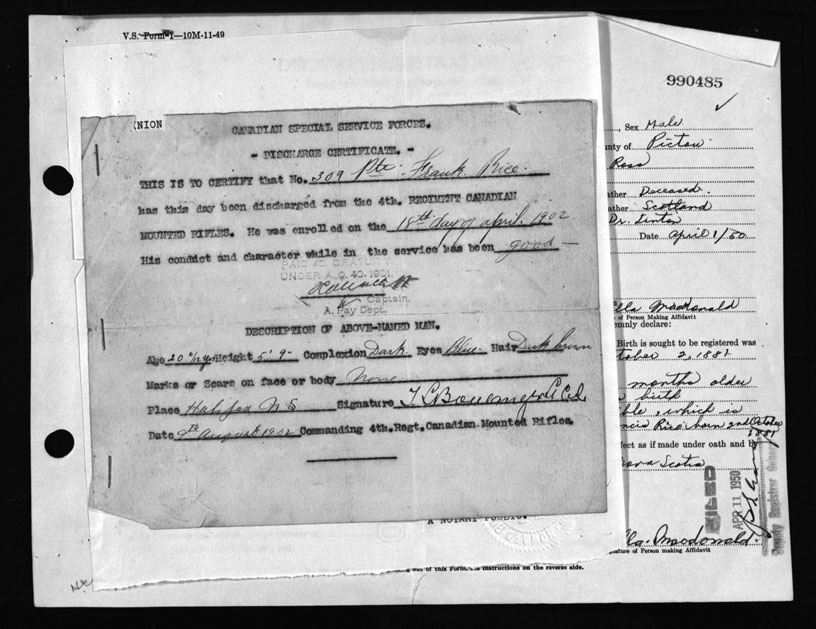 V.S. Form 1—10M-11-49
990485
NION
CANADIAN SPECIAL SERVICE FORCES.
- DISCHARGE CERTIFICATE. -
THIS IS TO CERTIFY that No. 309 Pte. Frank Rice.
has this day been discharged from the 4th. REGIMENT CANADIAN
MOUNTED RIFLES. He was enrolled on the 18th day of april. 1902
His conduct and character while in the service has been good —
UNDER A.O. 40. 1901.
Captain.
A. Pay Dept.
DESCRIPTION OF ABOVE-NAMED MAN.
Age 20 Height 5' 9" Complexion Dark Eyes Blue. Hair Dark brown
Marks or Scars on face or body None
Place Halifax N S Signature
Date 9th August 1902 Commanding 4th. Regt. Canadian Mounted Rifles.
A NOTARY PUBLIC.
, Sex Male
nty of Pictou
Ross
ther Deceased.
ather Scotland
Dr. Linton
Date April 1/50
lla Macdonald
of Person Making Affidavit
emnly declare:
Birth is sought to be registered was
tober 2, 1881
months older
birth
ble, which is
ncis Rice born 2nd October
1881
fect as if made under oath and by
ova Scotia
FILED
APR 11 1950
Deputy Registrar General
lla. Macdonald.
ature of Person making Affidavit
out of this Form, see instructions on the reverse side.